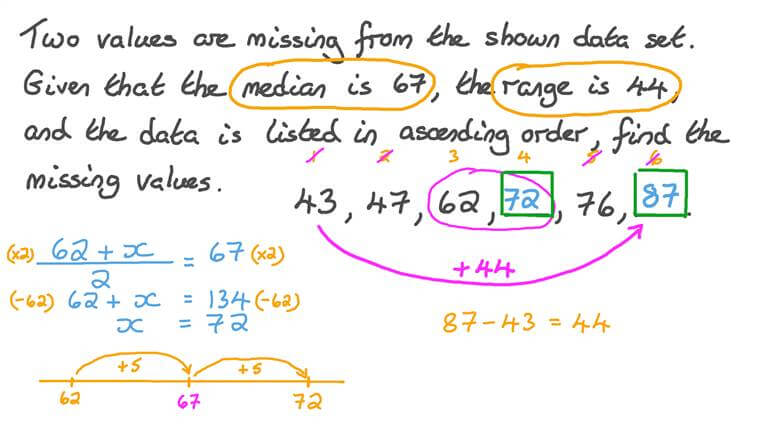 Two values are missing from the shown data set.
Given that the median is 67, the range is 44,
and the data is listed in ascending order, find the
1 2 3 4 5 6
missing values.
43, 47, 62, 72, 76, 87.
(x2) 62 + x / 2 = 67 (x2)
+44
(-62) 62 + x = 134 (-62)
x = 72
87 - 43 = 44
+5 +5
62 67 72